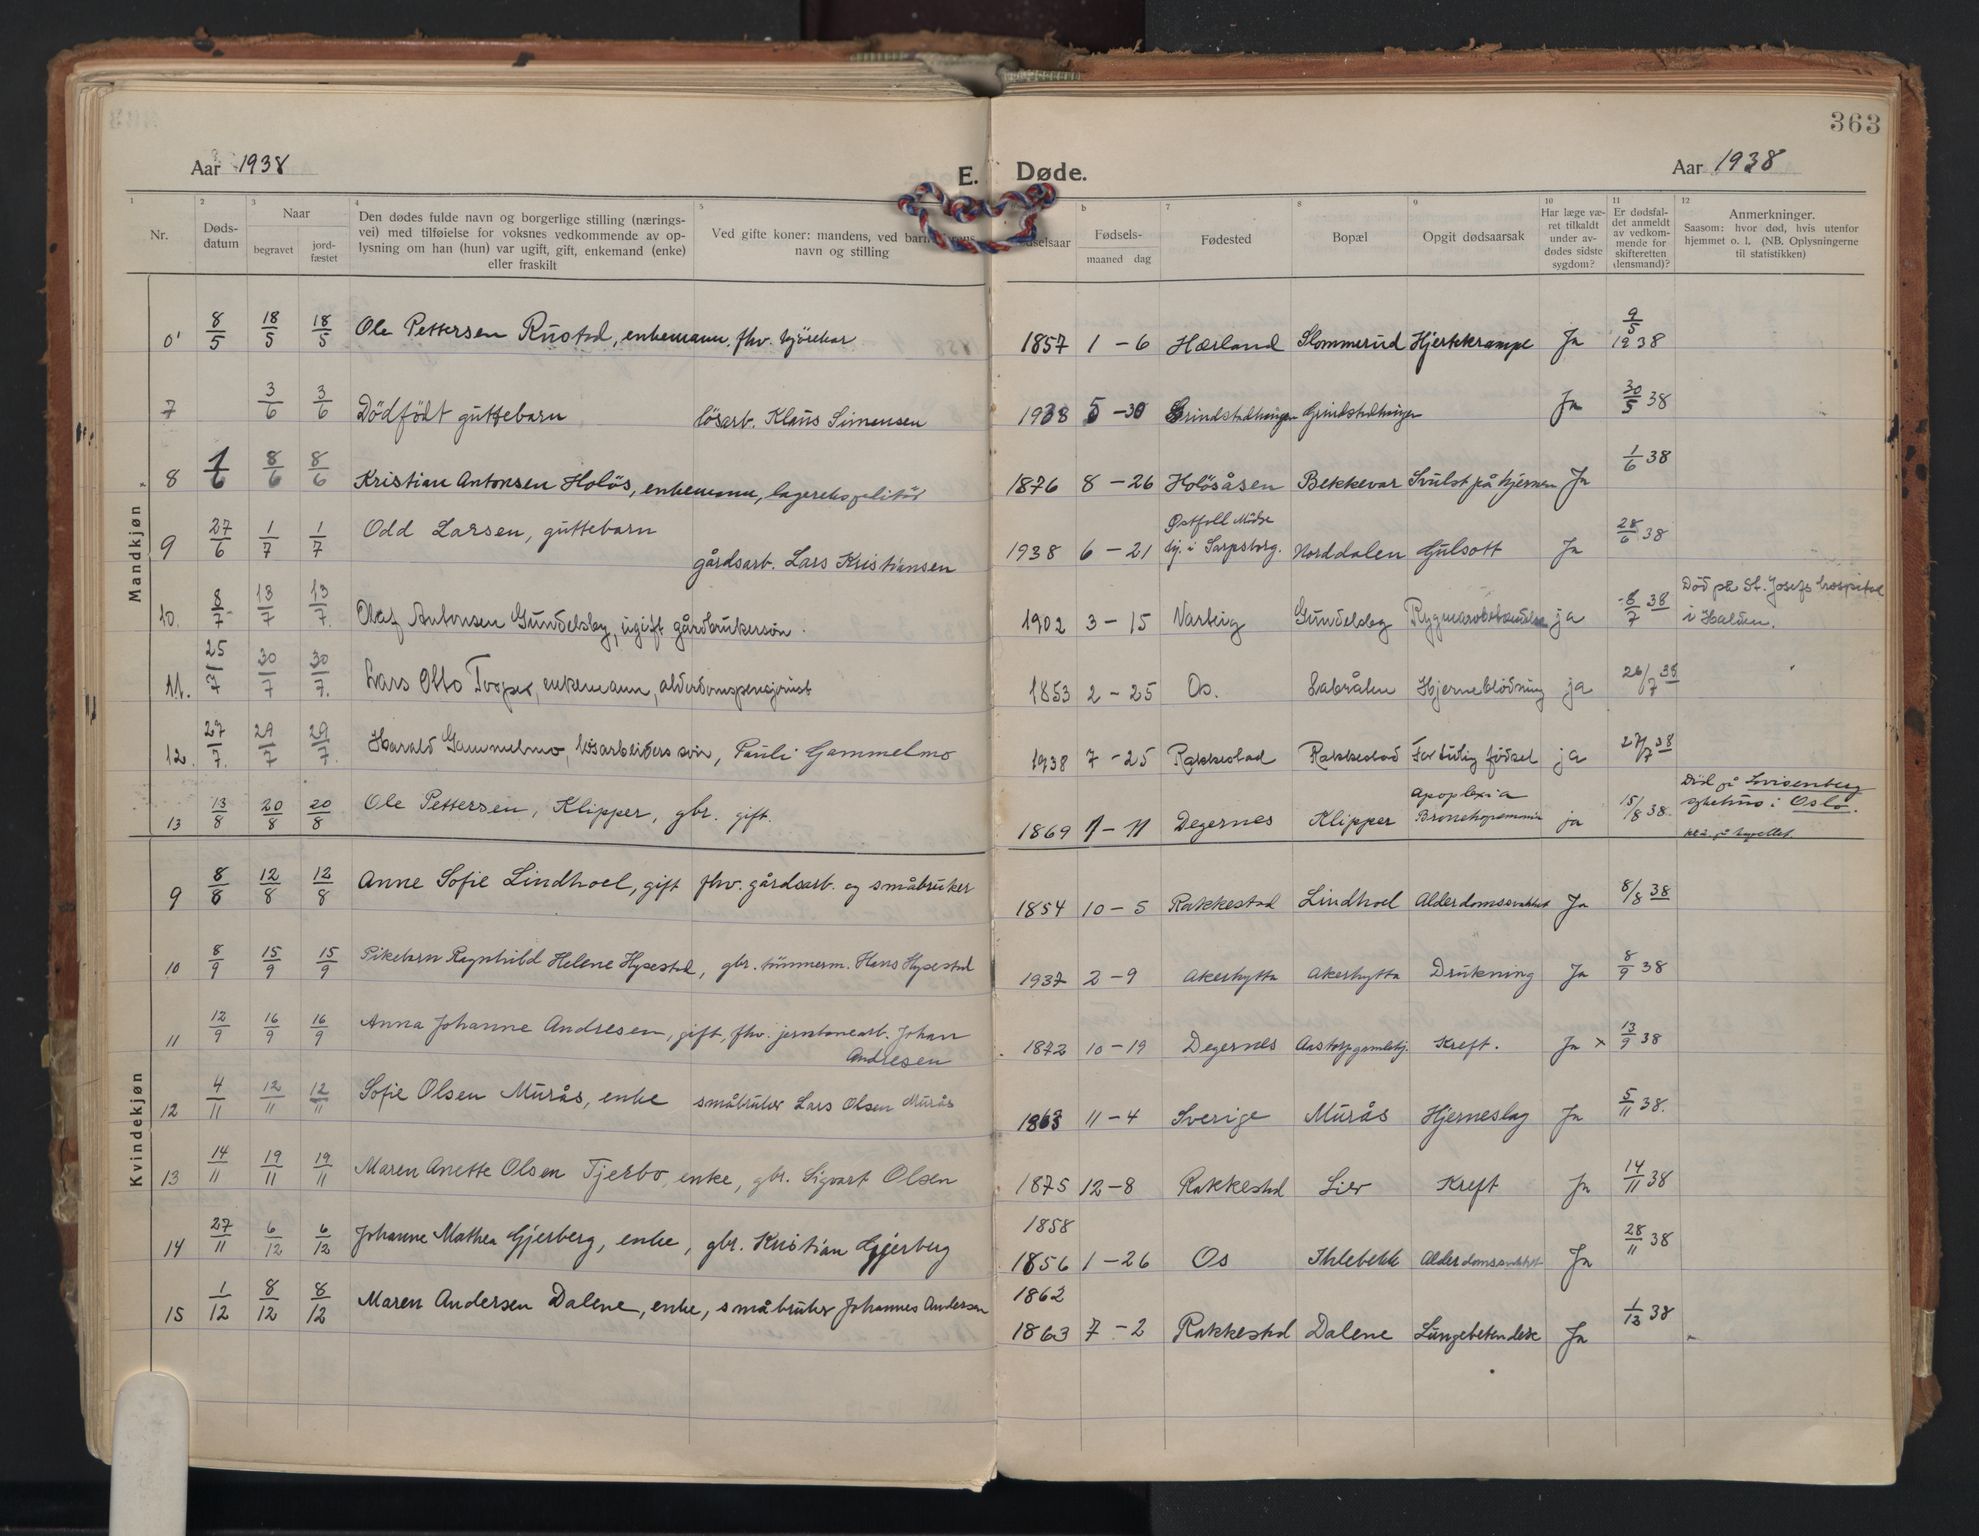 363
Aar 1938 E. Døde. Aar 1938
1 2 3 4 5 b 7 8 9 10 11 12
Nr. Døds-datum Naar begravet jord-fæstet Den dødes fulde navn og borgerlige stilling (nærings-vei) med tilføielse for voksnes vedkommende av op-lysning om han (hun) var ugift, gift, enkemand (enke) eller fraskilt Ved gifte koner: mandens, ved barn: navn og stilling Fødsels-maaned dag Fødested Bopæl Opgit dødsaarsak Har læge væ-ret tilkaldt under av-dødes sidste sygdom? Er dødsfal-det anmeldt av vedkom-mende for skifteretten (lensmand)? Anmerkninger. Saasom: hvor død, hvis utenfor hjemmet o. l. (NB. Oplysningerne til statistikken)
Mandkjøn
8/5 18/5 18/5 Ole Pettersen Rustad, enkemann, fhv. kjörekar 1857 1 – 6 Hærland Slommerud Hjertekrampe Ja 9/5 1938
7 3/6 3/6 Dödfödt guttebarn lösarb. Klaus Simensen 1938 5 – 30 Grindstadtvingen Grindstadtvingen Ja 30/5 38
8 1/6 8/6 8/6 Kristian Antonsen Holös, enkemann, lagerekspeditör 1876 8 – 26 Holösåsen Bekkevar Svulst på hjernen Ja 1/6 38
9 27/6 1/7 1/7 Odd Larsen, guttebarn gårdsarb. Lars Kristiansen 1938 6 – 21 Østfold i Sarpsborg. Norddalen Gulsott Ja 28/6 38
10. 8/7 13/7 13/7 Olaf Antonsen Gundelsby, ugift gårdbrukersön. 1902 3 – 15 Varteig Gundelsby ja 8/7 38 Död på St. Josefs hospital i Halden.
11. 25/7 30/7 30/7. Lars Otto enkemann, alderdomspensjonist 1853 2 – 25 Os. Sabrålen Hjerneblödning ja 26/7 38
12. 27/7. 29/7 29/7. Harald Gammelmo, lösarbeiders sön, Pauli Gammelmo 1938 7 – 25 Rakkestad Rakkestad For tidlig födsel ja 27/7 38
13 13/8 20/8 20/8 Ole Pettersen, Klipper, gbr. gift. 1869 1 – 11 Degernes Klipper Apoplexia Bronchopneumonia ja 15/8 38. Död på Lovisenberg sykehus i Oslo.
Kvindekjøn
9 8/8 12/8 12/8 Anne Sofie Lindhoel, gift fhv. gårdsarb. og småbruker 1854 10 – 5 Rakkestad Lindhoel Alderdomssvakhet Ja 8/8 38
10 8/9 15/9 15/9 Pikebarn Ragnhild Helene Hypestad, gbr. tömmerm. Hans Hypestad 1937 2 – 9 Akerhytta Akerhytta Drukning Ja 8/9 38
11 12/9 16/9 16/9 Anna Johanne Andresen, gift, fhv. jernbanearb. Johan
Andresen 1872 10 – 19 Degernes Aastorp gamlehj. Kreft. Ja × 13/9 38
12 4/11 12/11 12/11 Sofie Olsen Murås, enke småbruker Lars Olsen Murås 1863 11 – 4 Sverige Murås Hjerneslag Ja 5/11 38.
13 14/11 19/11 19/11 Maren Anette Olsen Tjerbo, enke, gbr. Sigvart Olsen 1875 12 – 8 Rakkestad Lier Kreft Ja 14/11 38
1858
14 27/11 6/12 6/12 Johanne Mathea Gjerberg, enke, gbr. Kristian Gjerberg 1856 1 – 26 Os Ihlebekk Alderdomssvakhet Ja 28/11 38
1862
15 1/12 8/12 8/12 Maren Andersen Dalene, enke, småbruker Johannes Andersen 1863 7 – 2 Rakkestad Dalene Lungebetendelse Ja 1/13 38